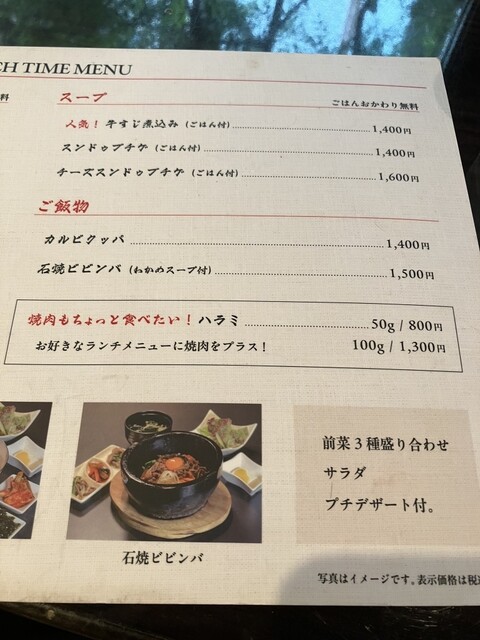 CH TIME MENU
料
スープ
ごはんおかわり無料
人気！ 牛すじ煮込み（ごはん付） 1,400円
スンドゥブチゲ（ごはん付） 1,400円
チーズスンドゥブチゲ（ごはん付） 1,600円
ご飯物
カルビクッパ 1,400円
石焼ビビンバ（わかめスープ付） 1,500円
焼肉もちょっと食べたい！ハラミ 50g / 800円
お好きなランチメニューに焼肉をプラス！ 100g / 1,300円
前菜３種盛り合わせ
サラダ
プチデザート付。
石焼ビビンバ
写真はイメージです。表示価格は税